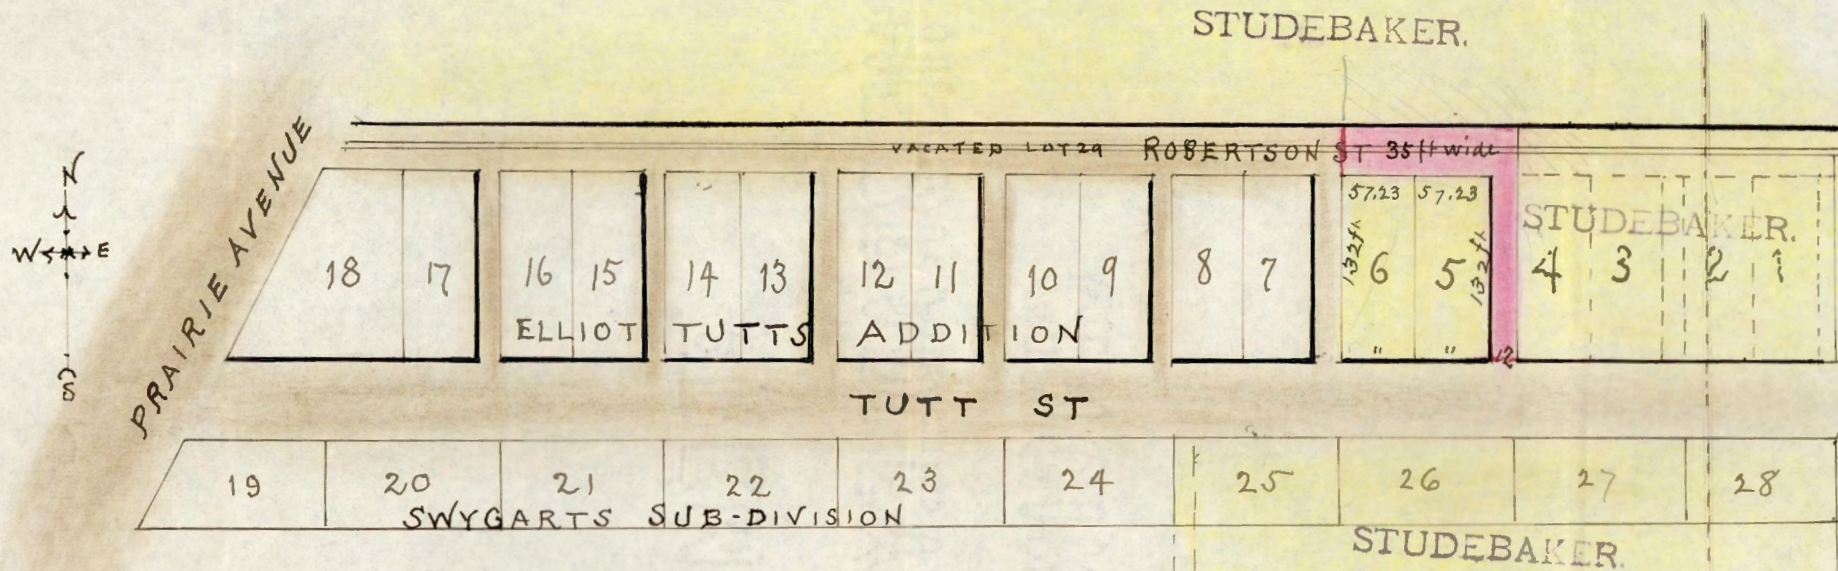 STUDEBAKER.
PRAIRIE AVENUE
VACATED LOT 29 ROBERTSON ST 35 ft wide
N
W E
S
57.23 57.23
132 ft 132 ft
STUDEBAKER.
18 17 16 15 14 13 12 11 10 9 8 7 6 5 4 3 2 1
ELLIOT TUTTS ADDITION
" "
12
TUTT ST
19 20 21 22 23 24 25 26 27 28
SWYGARTS SUB-DIVISION
STUDEBAKER.